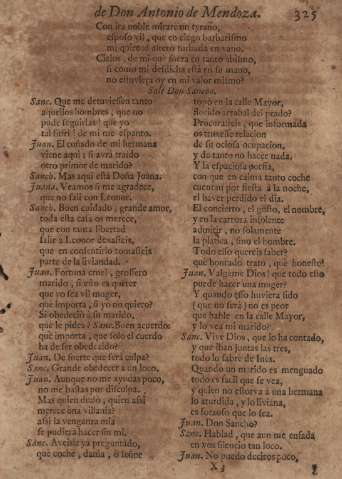 de Don Antonio de Mendoza. 325
Con ira noble mirare un tyrano,
esposo vil, que en ciego barbarismo
mi quietud altero turbada en vano.
Cielos, de mi no fuera en tanto abismo,
si como mi desdicha está en su mano,
no estuviera oy en mi valor mismo?
Sale Don Sancho.
Sanc. Que me detuviessen tanto
aquellos hombres, que no
pude seguirlas! que yo
tal sufri! de mi me espanto.
Juan. El cuñado de mi hermana
viene aqui; si avrà traido
otro primor de marido?
Sanch. Mas aqui està Doña Juana.
Juana. Veamos si me agradece,
que no sali con Leonor.
Sanch. Buen cuidado, grande amor,
toda esta casa os merece,
que con tanta libertad
salir à Leonor dexasteis,
que en consentirlo tomasteis
parte de la liviandad.
Juan. Fortuna cruel, grossero
marido, si aun es quiere
que yo sea vil muger,
que importa, si yo no quiero?
Si obedeciò à su marido,
que le pides? Sanc. Buen acuerdo:
què importa, que solo el cuerdo
ha de ser obedecido?
Juan. De suerte que serà culpa?
Sanc. Grande obedecer à un loco.
Juan. Aunque no me ayudas poco,
no me bastas por disculpa.
Mas quien dudò, quien assi
merece una villania?
assi la venganza mia
se pudiera hacer sin mi.
Sanc. Aveisla ya preguntado,
què coche, dama, ò
tuvo en la calle Mayor,
florido arrabal del prado?
Procurasteis, que informada
os truxesse relacion
de su ociosa ocupacion,
y de tanto no hacer nada.
Y la espaciosa poesia,
con que en calma tanto coche
cuentan por fiesta à la noche,
el haver perdido el dia.
El concierto, el gusto, el nombre,
y en la carroza insolente
admitir, no solamente
la platica, sino el hombre.
Todo esso quereis saber?
què honrado trato, què honesto!
Juan. Valgame Dios! què todo esso
puede hacer una muger?
Y quando esso huviera sido
( que no serà) no es peor
que hable en la calle Mayor,
y lo vea mi marido?
Sanc. Vive Dios, que lo ha contado,
y que iban juntas las tres,
todo lo sabre de Ines.
Quando un marido es menguado
todo es facil que se vea,
y quien no estorva à una hermana
lo aturdida, y lo liviana,
es forzoso que lo sea.
Juan. Don Sancho?
Sanc. Hablad, que aun me enfada
en vos silencio tan loco.
Juan. No puedo deciros poco,
X